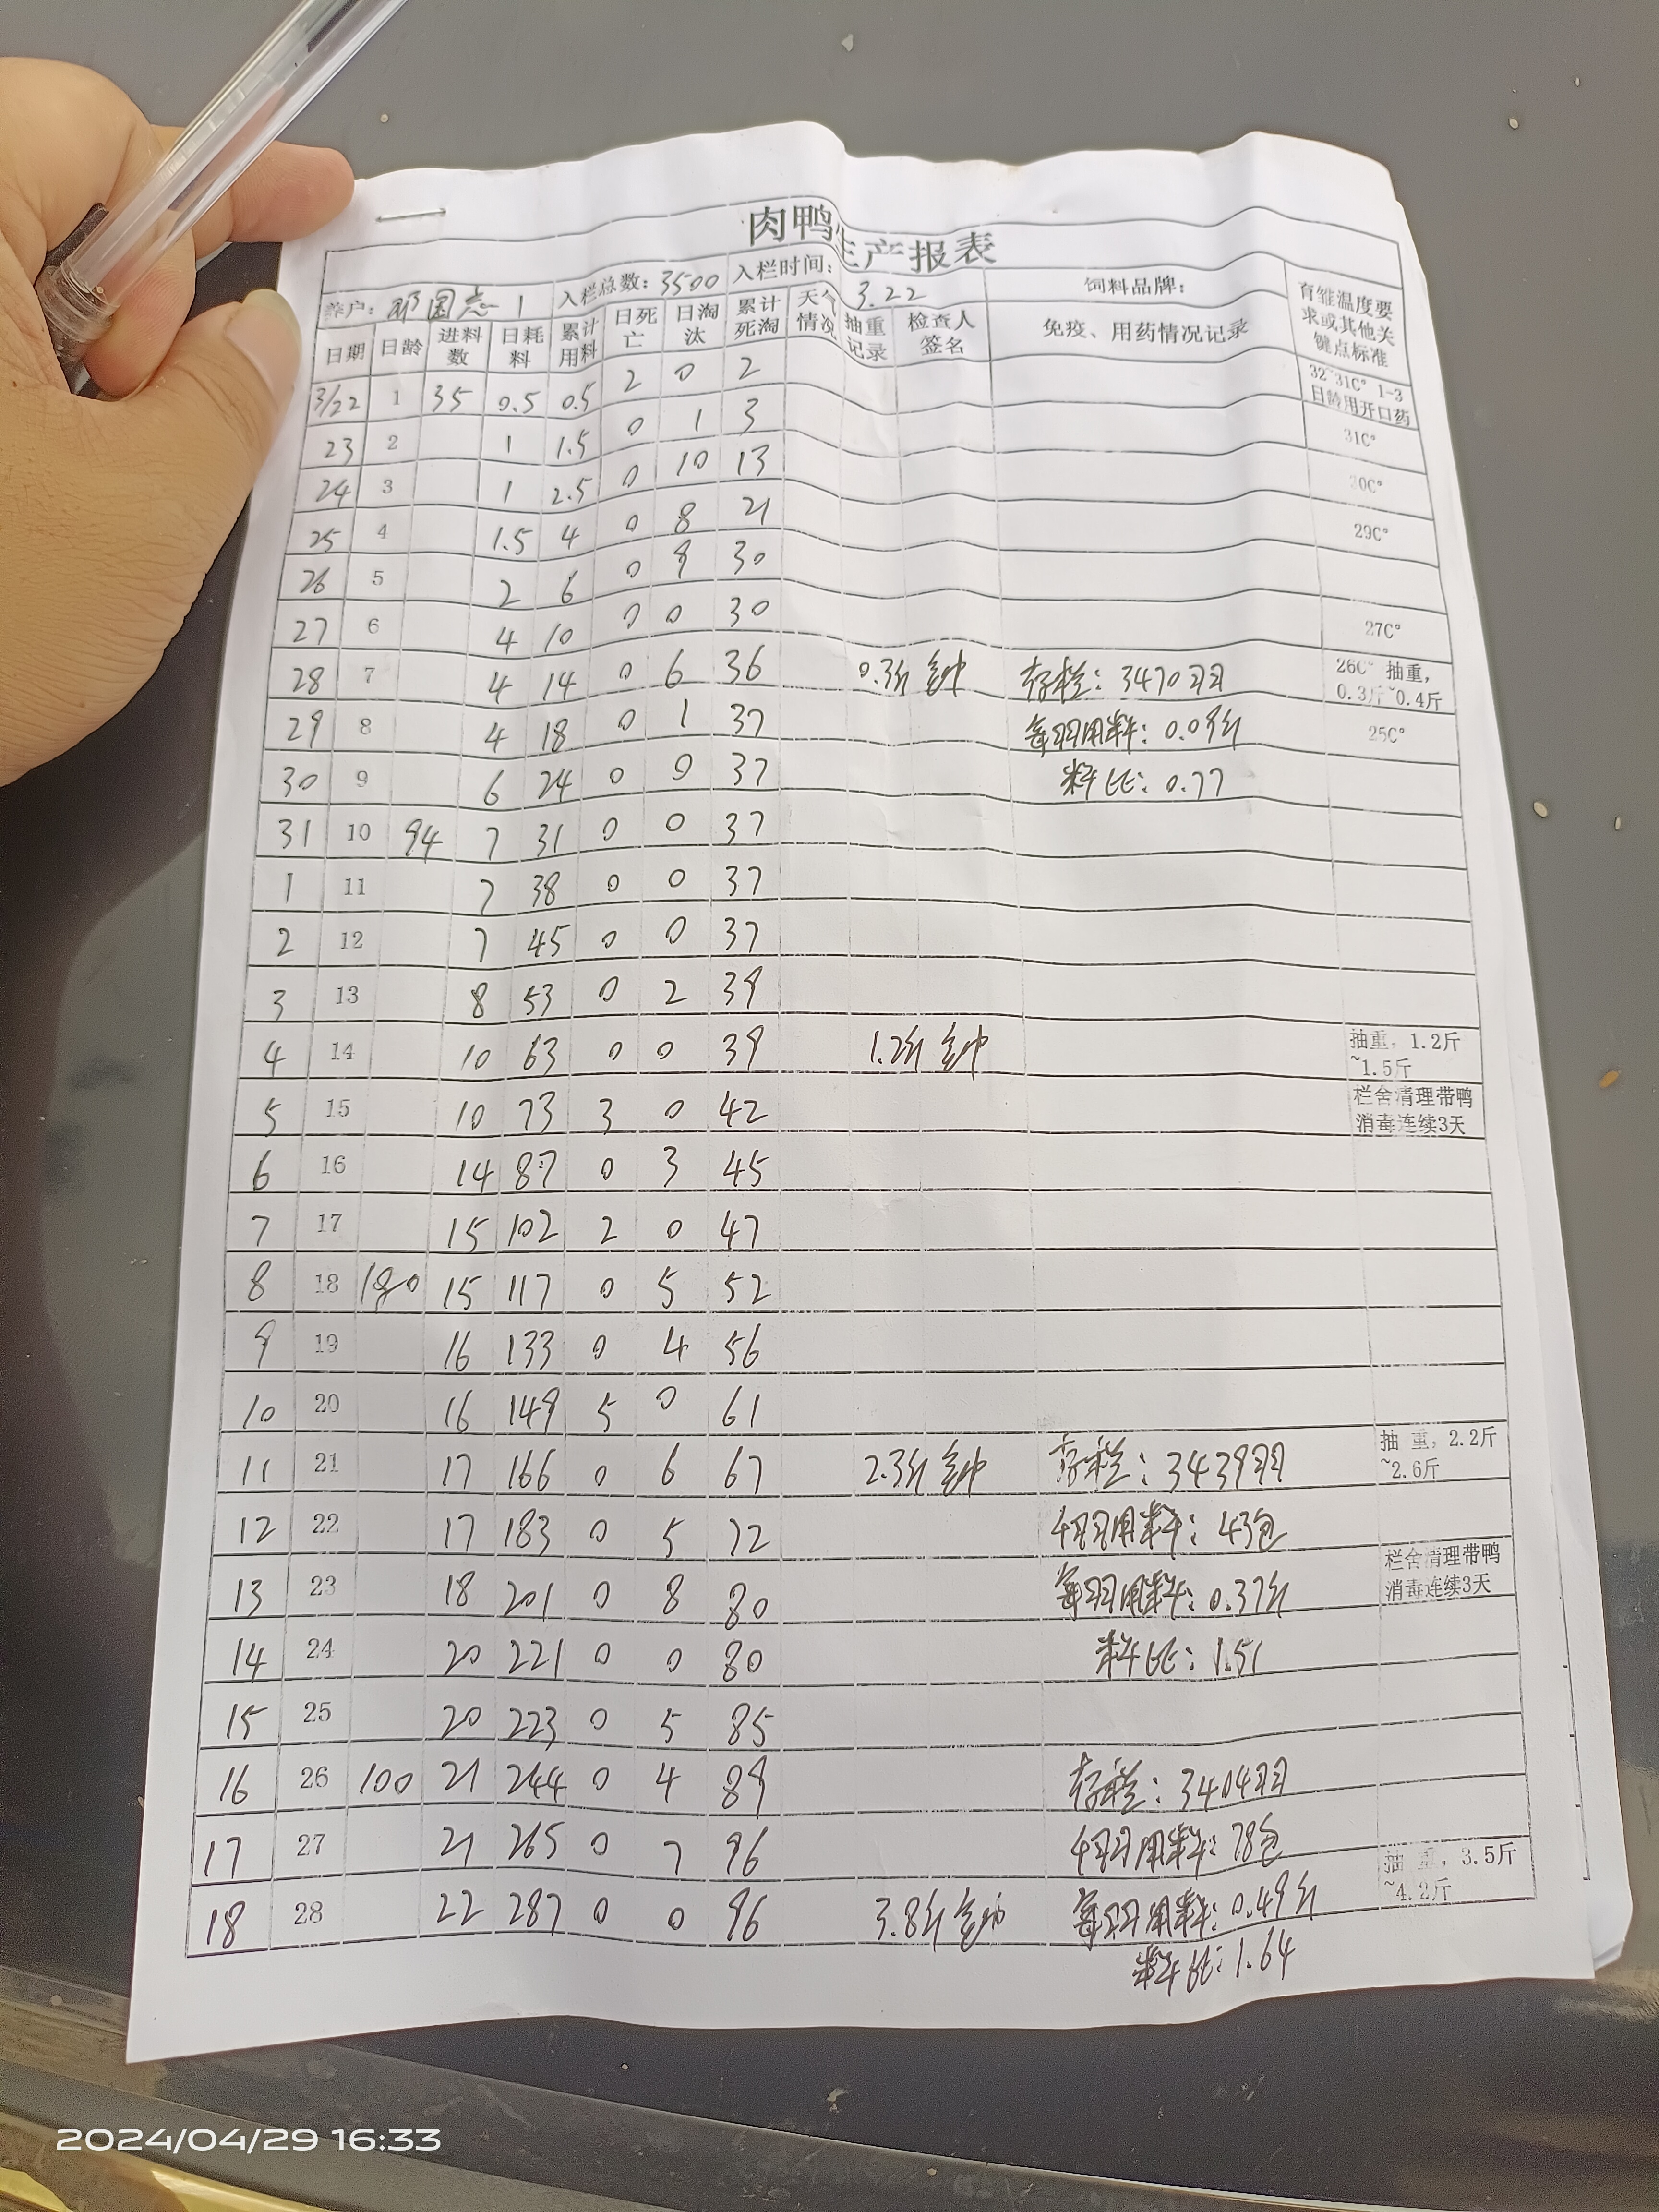 肉鸭生产报表
养户：邓国志 1 入栏总数：3500 入栏时间：3.22 饲料品牌：
日期 日龄 进料数 日耗料 累计用料 日死亡 日淘汰 累计死淘 天气情况 抽重记录 检查人签名 免疫、用药情况记录 育雏温度要求或其他关键点标准
3/22 1 35 0.5 0.5 2 0 2 32~31C° 1-3日龄用开口药
23 2 1 1.5 0 1 3 31C°
24 3 1 2.5 0 10 13 30C°
25 4 1.5 4 0 8 21 29C°
26 5 2 6 0 9 30
27 6 4 10 0 0 30 27C°
28 7 4 14 0 6 36 0.3斤 存栏：3470羽 26C° 抽重，0.3斤~0.4斤
29 8 4 18 0 1 37 每羽用料：0.09斤 25C°
30 9 6 24 0 0 37 料比：0.77
31 10 94 7 31 0 0 37
1 11 7 38 0 0 37
2 12 7 45 0 0 37
3 13 8 53 0 2 39
4 14 10 63 0 0 39 1.2斤 抽重，1.2斤~1.5斤
5 15 10 73 3 0 42 栏舍清理带鸭消毒连续3天
6 16 14 87 0 3 45
7 17 15 102 2 0 47
8 18 180 15 117 0 5 52
9 19 16 133 0 4 56
10 20 16 149 5 0 61
11 21 17 166 0 6 67 2.3斤 存栏：3439羽 抽 重，2.2斤~2.6斤
12 22 17 183 0 5 72 千羽用料：43包
13 23 18 201 0 8 80 每羽用料：0.37斤 栏舍清理带鸭消毒连续3天
14 24 20 221 0 0 80 料比：1.51
15 25 20 223 0 5 85
16 26 100 21 244 0 4 89 存栏：3404羽
17 27 21 265 0 7 96 千羽用料：78包
18 28 22 287 0 0 96 3.8斤 每羽用料：0.49斤 抽 重，3.5斤~4.2斤
料比：1.64
2024/04/29 16:33